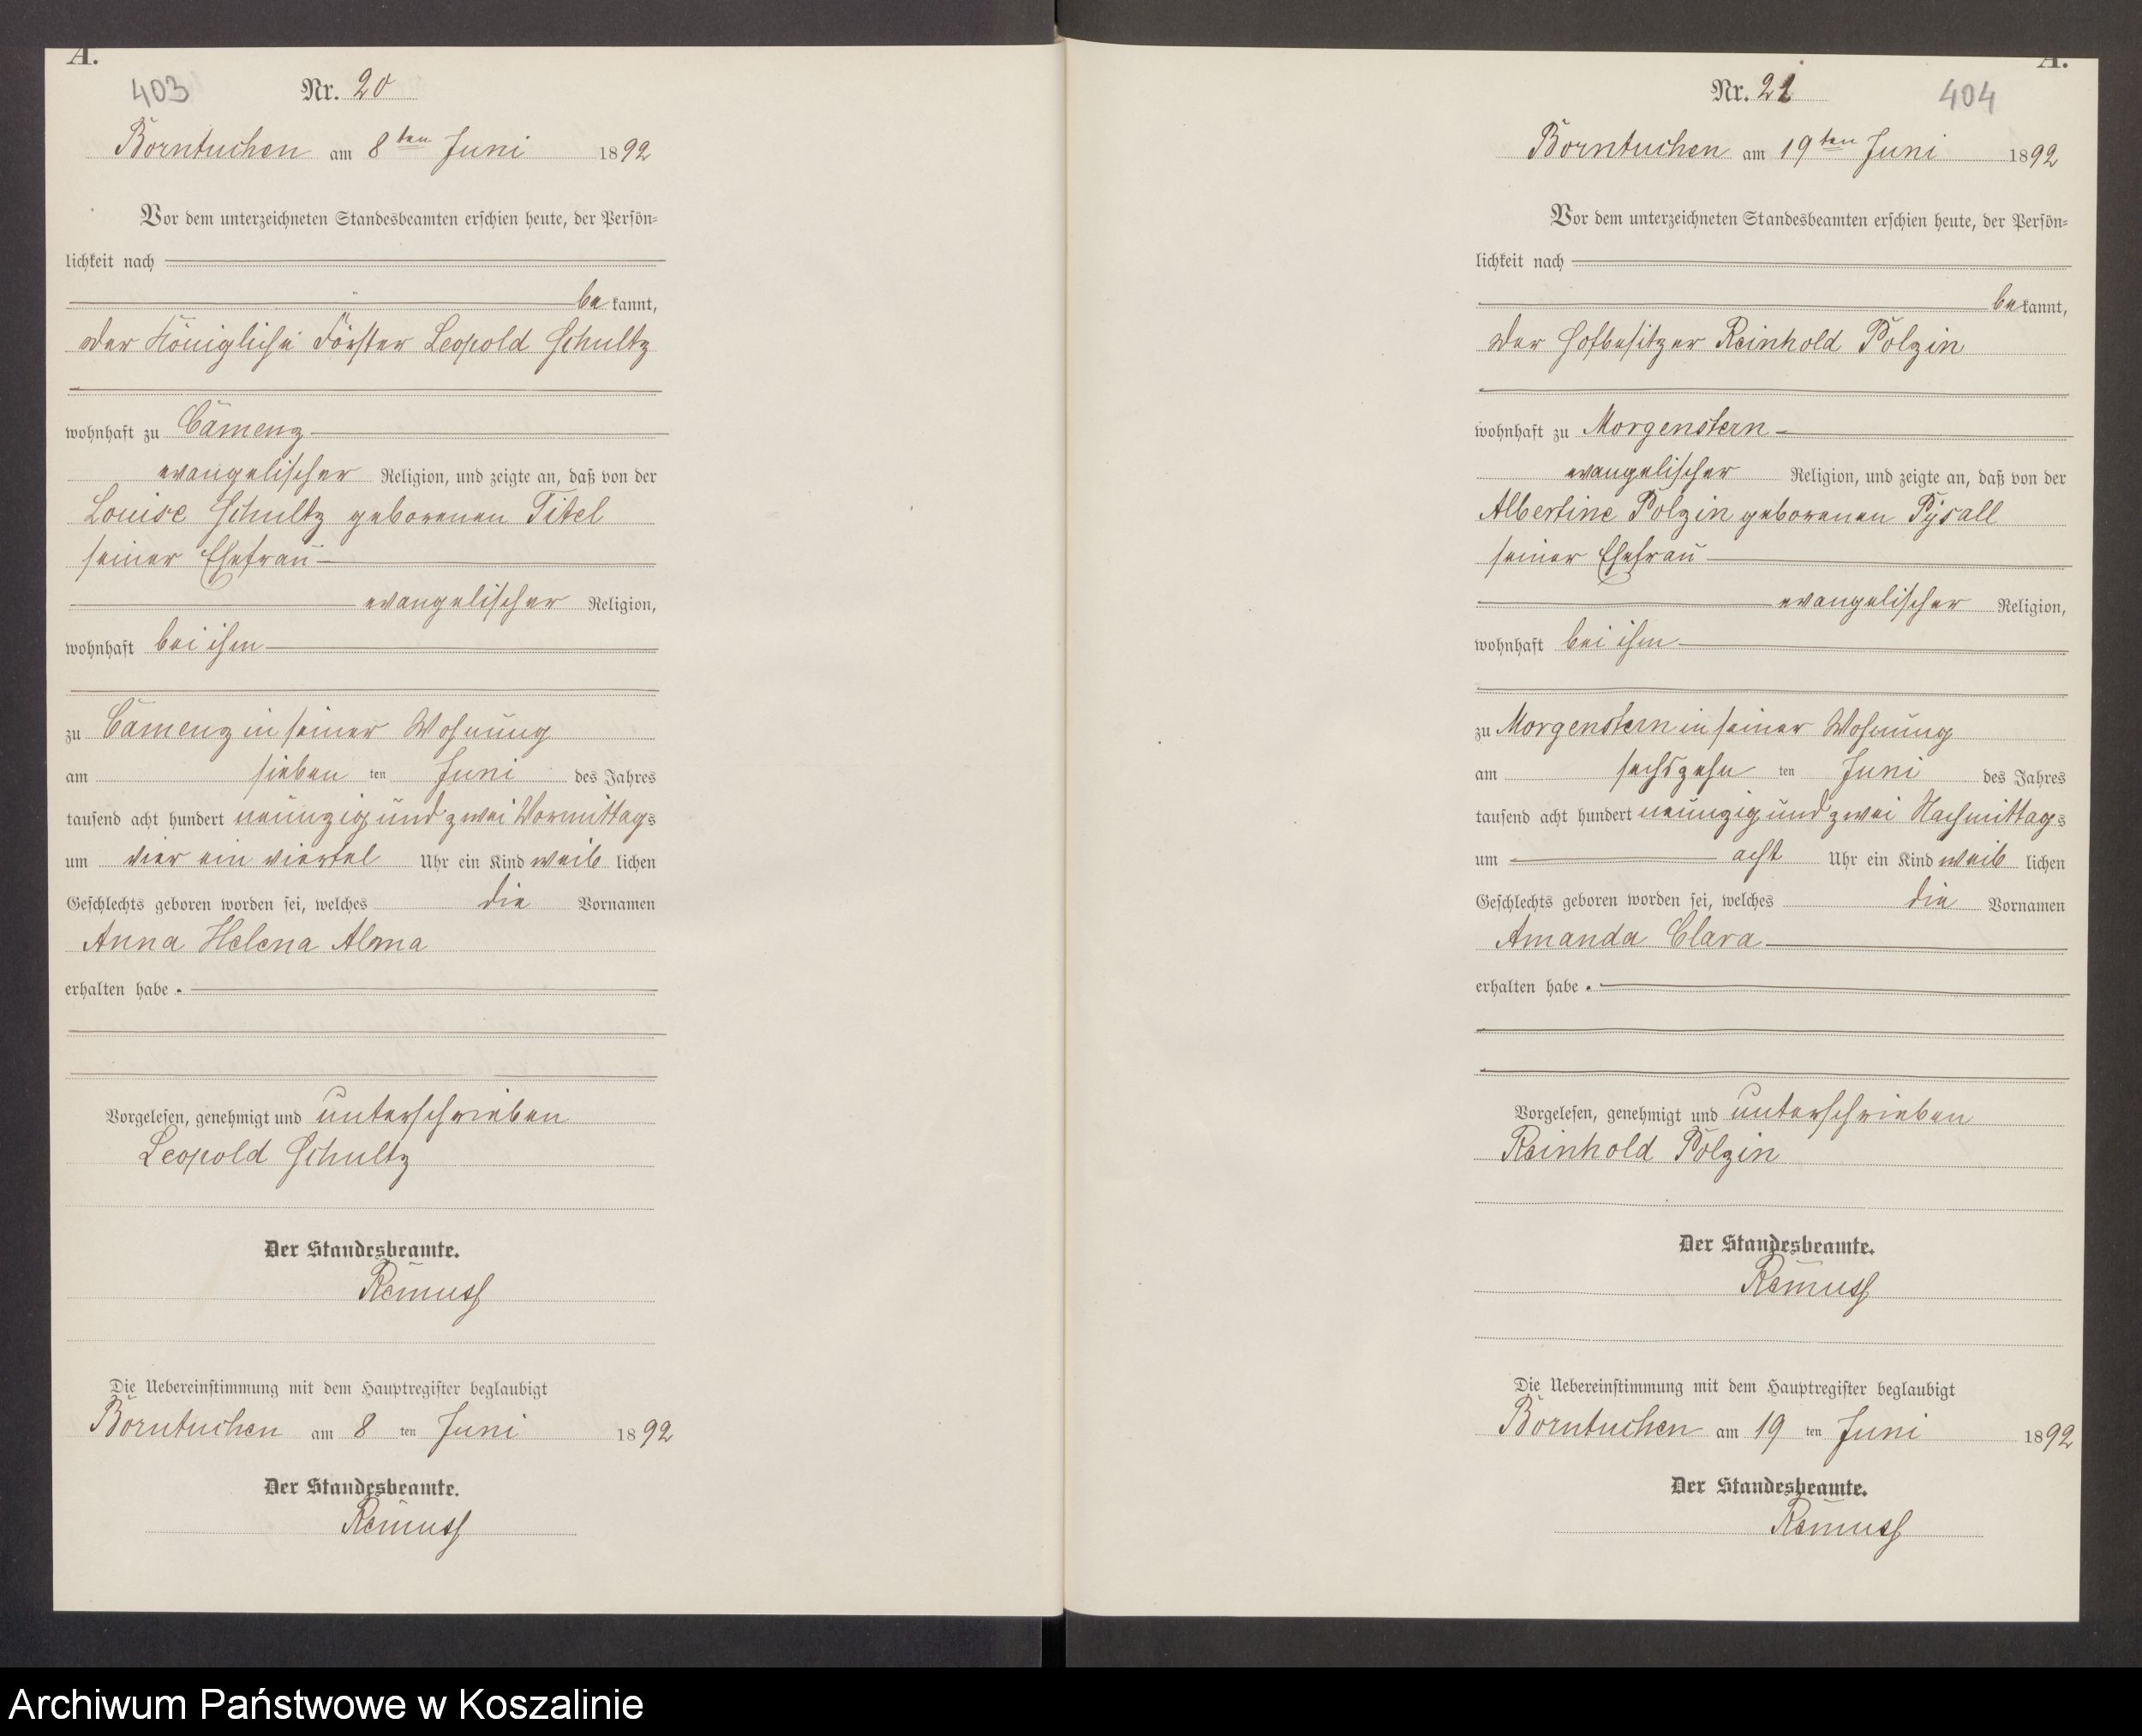 A.
403
Nr. 20
Borntuchen am 8ten Juni 1892
Vor dem unterzeichneten Standesbeamten erschien heute, der Persön=
lichkeit nach
bekannt,
der Königliche Förster Leopold Schultz
wohnhaft zu Camenz
evangelischer Religion, und zeigte an, daß von der
Louise Schultz geborenen Titel
seiner Ehefrau
evangelischer Religion,
wohnhaft bei ihm
zu Camenz in seiner Wohnung
am sieben ten Juni des Jahres
tausend acht hundert neunzig und zwei Vormittags
um vier ein viertel Uhr ein Kind weiblichen
Geschlechts geboren worden sei, welches die Vornamen
Anna Helena Alma
erhalten habe.
Vorgelesen, genehmigt und unterschrieben
Leopold Schultz
Der Standesbeamte.
Remuss
Die Uebereinstimmung mit dem Hauptregister beglaubigt
Borntuchen am 8 ten Juni 1892
Der Standesbeamte.
Remuss
A.
Nr. 21
404
Borntuchen am 19ten Juni 1892
Vor dem unterzeichneten Standesbeamten erschien heute, der Persön=
lichkeit nach
bekannt,
der Hofbesitzer Reinhold Polzin
wohnhaft zu Morgenstern
evangelischer Religion, und zeigte an, daß von der
Albertine Polzin geborenen Pysall
seiner Ehefrau
evangelischer Religion,
wohnhaft bei ihm
zu Morgenstern in seiner Wohnung
am sechszehn ten Juni des Jahres
tausend acht hundert neunzig und zwei Nachmittags
um acht Uhr ein Kind weiblichen
Geschlechts geboren worden sei, welches die Vornamen
Amanda Clara
erhalten habe.
Vorgelesen, genehmigt und unterschrieben
Reinhold Polzin
Der Standesbeamte.
Remuss
Die Uebereinstimmung mit dem Hauptregister beglaubigt
Borntuchen am 19 ten Juni 1892
Der Standesbeamte.
Remuss
Archiwum Państwowe w Koszalinie